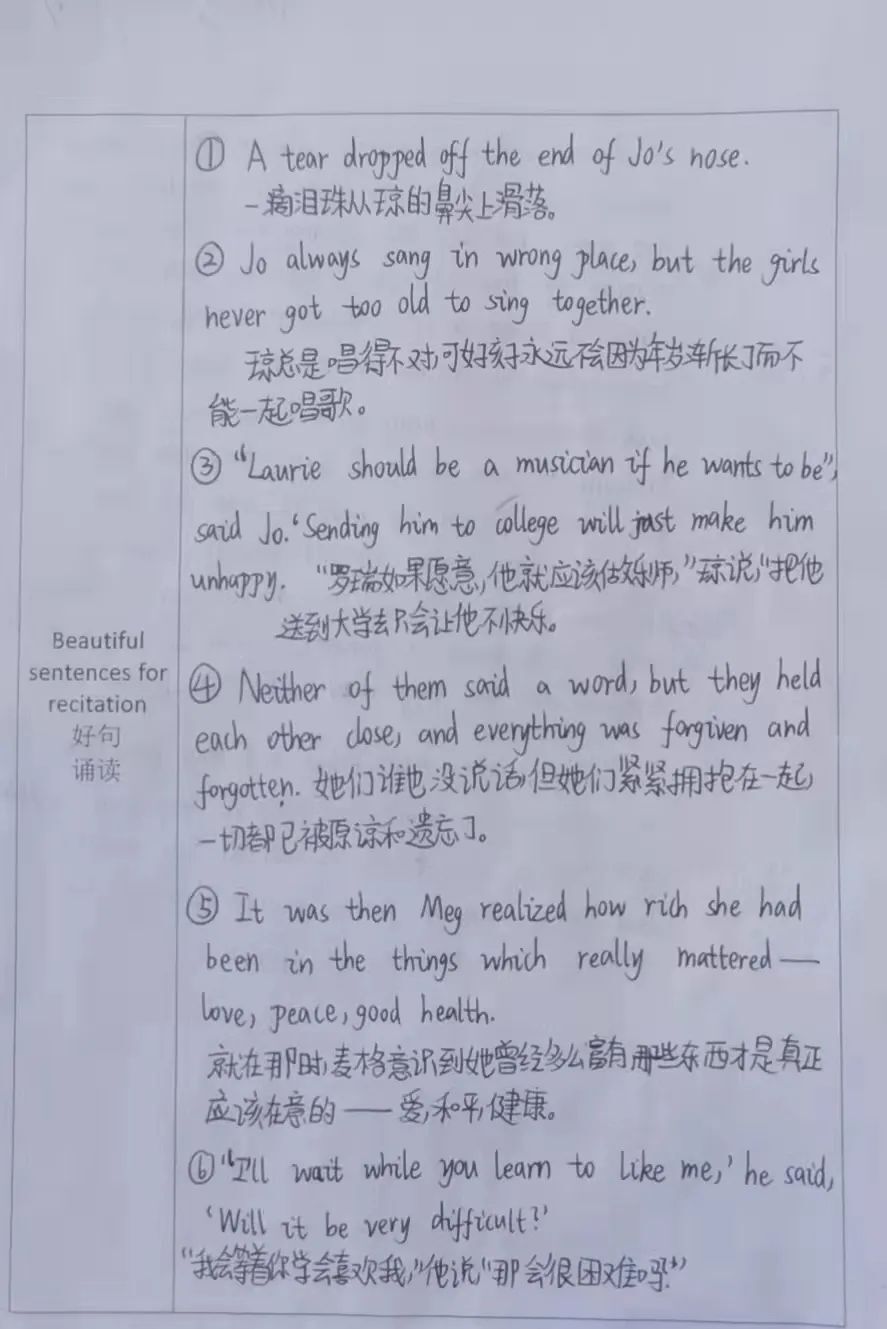 Beautiful
sentences for
recitation
好句
诵读
① A tear dropped off the end of Jo's nose.
一滴泪珠从琼的鼻尖上滑落。
② Jo always sang in wrong place, but the girls
never got too old to sing together.
琼总是唱得不对,可好孩子永远不会因为年岁渐长了而不
能一起唱歌。
③ "Laurie should be a musician if he wants to be",
said Jo.'Sending him to college will just make him
unhappy. "罗瑞如果愿意,他就应该做乐师,"琼说,"把他
送到大学去只会让他不快乐。
④ Neither of them said a word, but they held
each other close, and everything was forgiven and
forgotten. 她们谁也没说话,但她们紧紧拥抱在一起,
一切都已被原谅和遗忘了。
⑤ It was then Meg realized how rich she had
been in the things which really mattered——
love, peace, good health.
就在那时,麦格意识到她曾经多么富有那些东西才是真正
应该在意的——爱,和平,健康。
⑥ "I'll wait while you learn to like me,' he said,
'Will it be very difficult?'
"我会等着你学会喜欢我,"他说"那会很困难吗?"